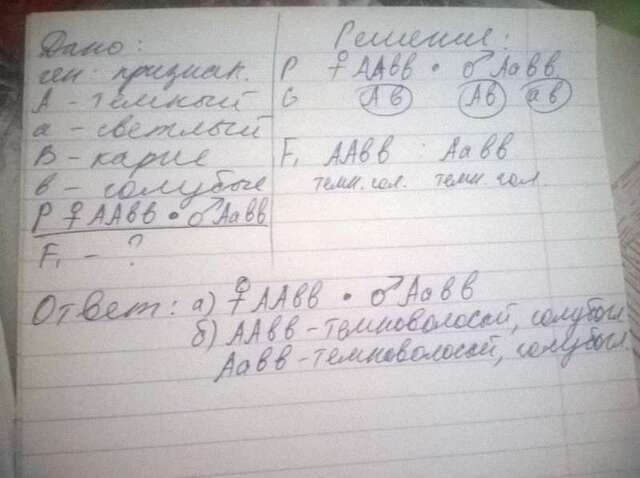 Дано:
ген. признак.
А - темный
а - светлый
В - карие
в - голубые
Р ♀ ААвв • ♂ Аавв
F₁ - ?
Решение:
Р ♀ ААвв • ♂ Аавв
G Ав Ав ав
F₁ ААвв : Аавв
темн. гол. темн. гол.
Ответ: а) ♀ ААвв • ♂ Аавв
б) ААвв - темноволосый, голубогл.
Аавв - темноволосый, голубогл.